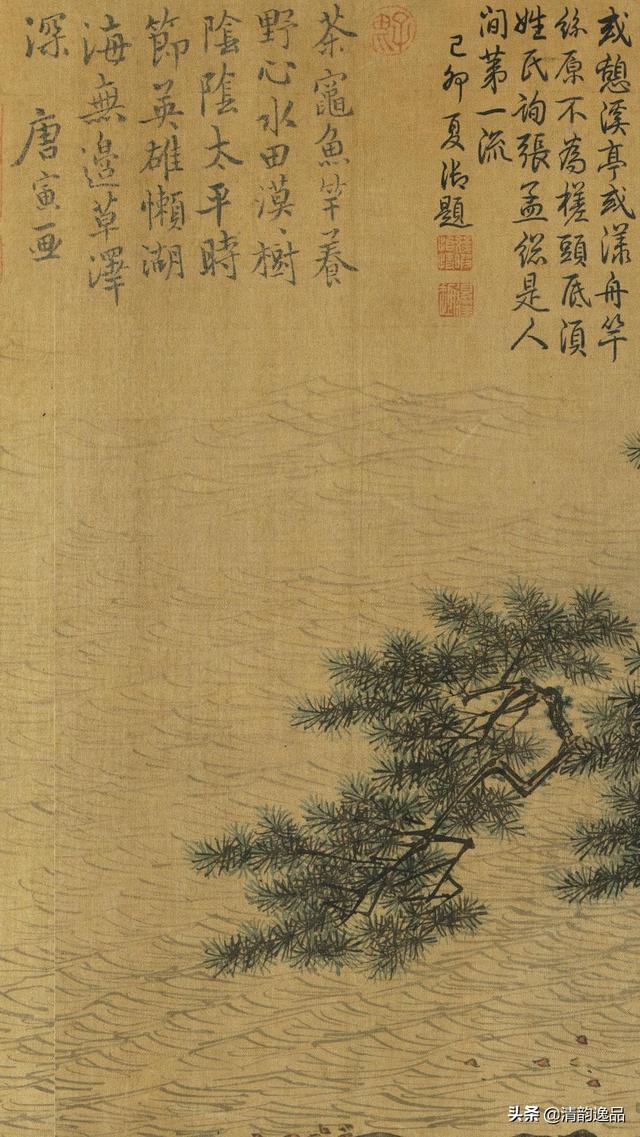 或憩溪亭或漾舟竿
絲原不為槎頭底湏
姓氏詢張孟總是人
間第一流
己卯夏御題
茶竈魚竿養
野心水田漠〻樹
陰陰太平時
節英雄懶湖
海無邊草澤
深 唐寅画
头条 @清韵逸品